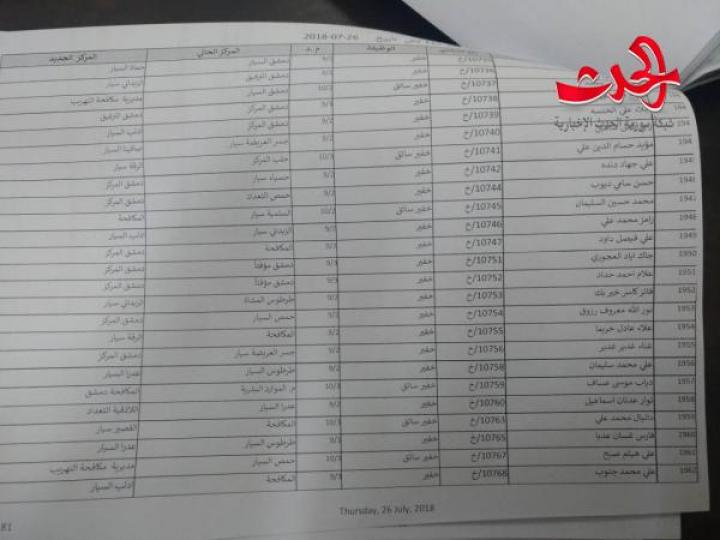 الحدث
شبكة سورية الحدث الإخبارية
2018-07-26
الوظيفة م.د المركز الحالي المركز الجديد
خ/10735 خفير 9/2 دمشق السيار حماه السيار
خ/10736 خفير 9/2 دمشق الترفيق الزبداني سيار
خ/10737 خفير سائق 10/2 دمشق السيار مديرية مكافحة التهريب
خ/10738 خفير 9/3 دمشق المركز دمشق الترفيق
خ/10739 خفير 9/2 دمشق السيار ادلب السيار
خ/10740 خفير 9/2 جسر العريضة سيار صافيتا السيار
مؤيد حسام الدين علي خ/10741 خفير سائق 10/3 حلب المركز الرقة سيار
علي جهاد دنده خ/10742 خفير 9/2 حسياء سيار دمشق المركز
حسن سامي ديوب خ/10744 خفير 9/2 حمص التعداد دمشق المركز
محمد حسين السليمان خ/10745 خفير سائق 10/2 السلمية سيار المكافحة
1948 رامز محمد علي خ/10746 خفير 9/2 الزبداني سيار ادلب السيار
1949 علي فيصل داود خ/10747 خفير 9/3 المكافحة دمشق المركز
1950 جاك اياد العجوري خ/10751 خفير 9/3 دمشق مؤقتاً دمشق المركز
1951 علام احمد حداد خ/10752 خفير 9/3 دمشق مؤقتاً دمشق المركز
1952 فائز كاسر خير بك خ/10753 خفير 9/2 طرطوس المشاة الزبداني سيار
1953 نور الله معروف رزوق خ/10754 خفير 9/2 حمص السيار دمشق المركز
1954 علاء عادل خريما خ/10755 خفير 9/2 المكافحة الرقة سيار
1955 غدير غدير خ/10756 خفير 9/2 جسر العريضة سيار دمشق المركز
1956 علي محمد سليمان خ/10758 خفير 9/2 طرطوس السيار عدرا السيار
1957 دراب موسى عساف خ/10759 خفير سائق 10/3 م. الموارد البشرية المكافحة دمشق
1958 نوار عدنان اسماعيل خ/10760 خفير 9/2 عدرا السيار اللاذقية التعداد
1959 دانيال محمد علي خ/10763 خفير سائق 10/3 المكافحة القصير سيار
1960 فارس غسان عديا خ/10765 خفير 9/3 طرطوس السيار عدرا السيار
1961 علي هيثم صبح خ/10767 خفير سائق 10/3 حمص السيار مديرية مكافحة التهريب
1962 علي محمد جنوب خ/10768 خفير 9/3 المكافحة ادلب السيار
Thursday, 26 July, 2018
81